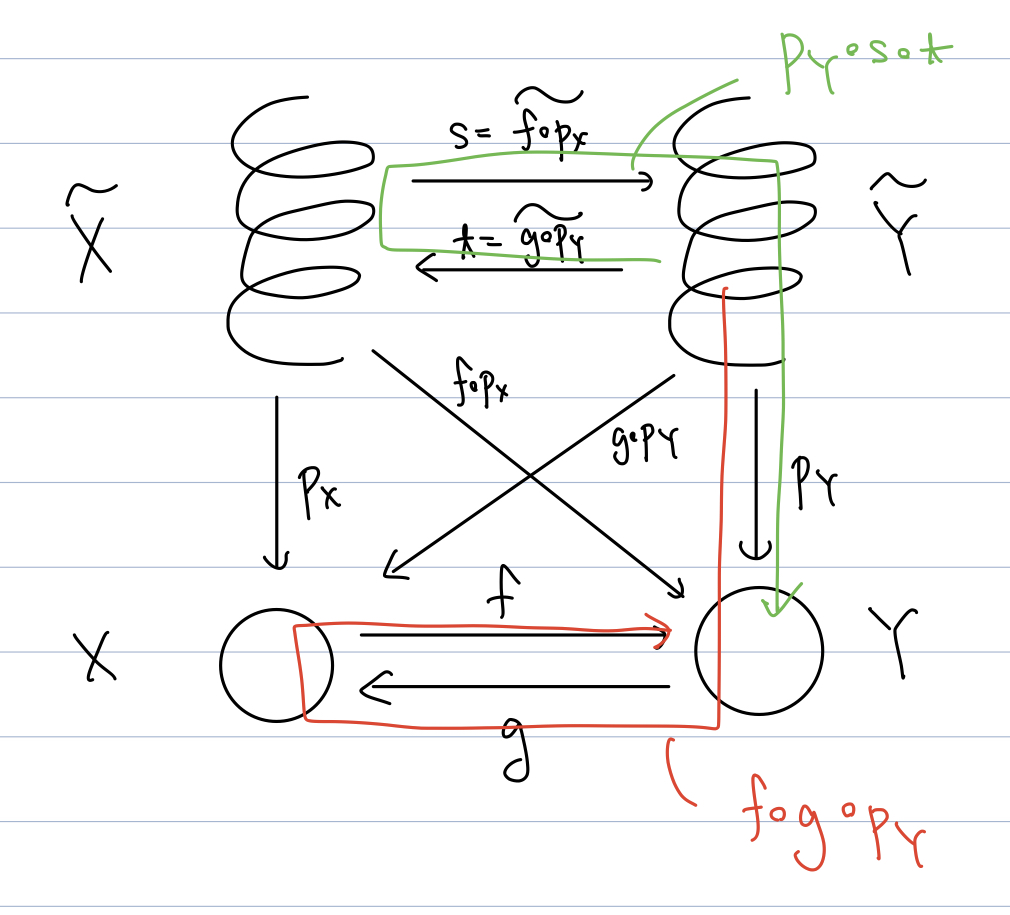 p_Y∘s∘t
s = \widetilde{f∘p_X}
\widetilde{X}
\widetilde{Y}
t = \widetilde{g∘p_Y}
f∘p_X
g∘p_Y
p_X
p_Y
f
X
Y
g
f∘g∘p_Y